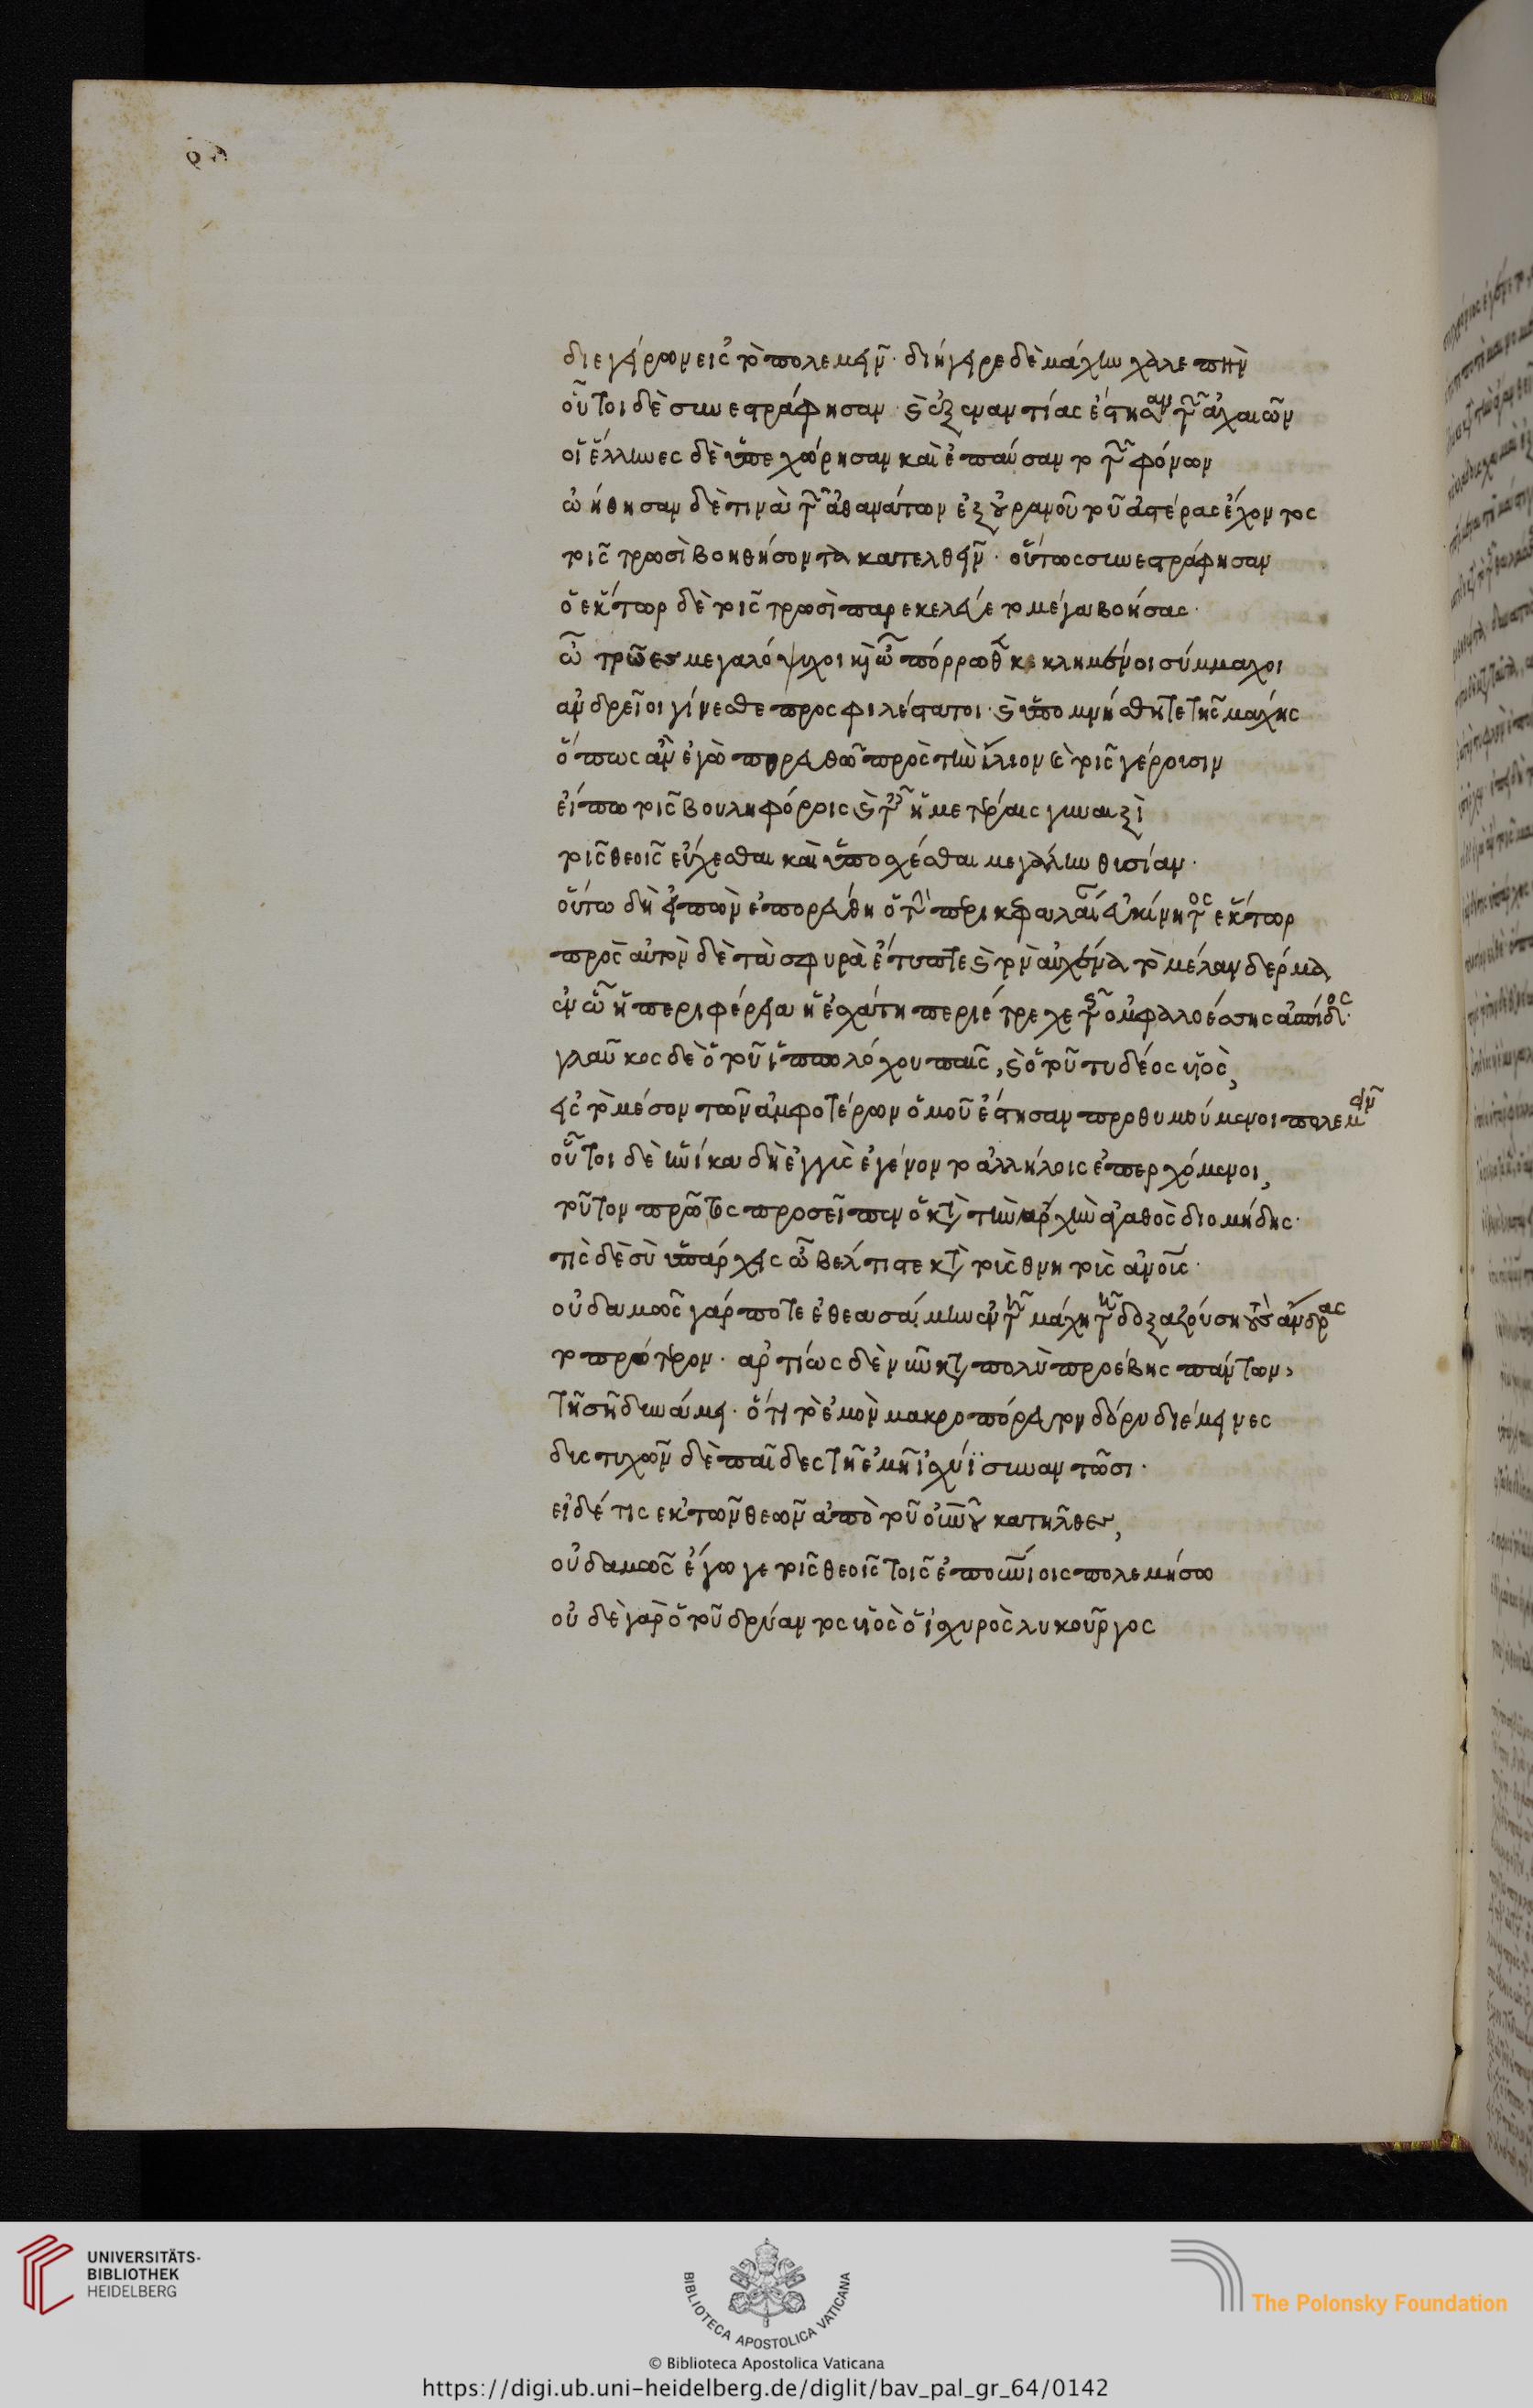 διεγείρων εἰς τὸ πολεμεῖν· διήγειρε δὲ μάχην χαλεπὴν
οὗτοι δὲ συνεστράφησαν καὶ ἐξεναντίας ἔστησαν τῶν ἀχαιῶν
οἱ ἕλληνες δὲ ὑπεχώρησαν καὶ ἐπαύσαντο τῶν φόνων
ὠήθησαν δὲ τινὰ τῶν ἀθανάτων ἐξ οὐρανοῦ τοῦ ἀστέρας ἔχοντος
τοῖς τρωσὶ βοηθήσοντα κατελθεῖν· οὕτως συνεστράφησαν
ὁ ἕκτωρ δὲ τοῖς τρωσὶ παρεκελεύετο μέγα βοήσας·
ὦ τρῶες μεγαλόψυχοι καὶ ὦ πόρρωθεν κεκλημένοι σύμμαχοι
ἀνδρεῖοι γίνεσθε προσφιλέστατοι· καὶ ὑπομνήσθητε τῆς μάχης
ὅπως ἂν ἐγὼ πορευθῶ πρὸς τὴν ἴλιον καὶ τοῖς γέρουσιν
εἴπω τοῖς βουληφόροις καὶ ταῖς ἡμετέραις γυναιξὶ
τοῖς θεοῖς εὔχεσθαι καὶ ὑποσχέσθαι μεγάλην θυσίαν·
οὕτω δὴ εἰπὼν ἐπορεύθη ὁ τὴν περικεφαλαίαν εὐκίνητος ἕκτωρ
πρὸς αὐτὸν δὲ τὰ σφυρὰ ἔτυπτε καὶ τὸν αὐχένα τὸ μέλαν δέρμα
ἐν ᾧ ἡ περιφέρεια ἡ ἐσχάτη περιέτρεχε τῆς ὀμφαλοέσσης ἀσπίδος·
γλαῦκος δὲ ὁ τοῦ ἱππολόχου παῖς, καὶ ὁ τοῦ τυδέος υἱὸς,
εἰς τὸ μέσον τῶν ἀμφοτέρων ὁμοῦ ἔστησαν προθυμούμενοι πολεμεῖν
οὗτοι δὲ ἡνίκα δὴ ἐγγὺς ἐγένοντο ἀλλήλοις ἐπερχόμενοι,
τοῦτον πρῶτος προσεῖπεν ὁ κατὰ τὴν ἀρχὴν ἀγαθὸς διομήδης·
τὶς δὲ σὺ ὑπάρχεις ὦ βέλτιστε κατὰ τοὺς θνητοὺς ἀνοῖς·
οὐδαμῶς γάρ ποτε ἐθεασάμην ἐν τῇ μάχῃ τῇ δοξαζούσῃ τοὺς ἄνδρας
τοπρότερον· ἀρτίως δὲ νῦν κατὰ πολὺ προέβης πάντων,
τῇ σῇ δυνάμει· ὅτι τὸ ἐμὸν μακροπόρευτον δόρυ διέμεινες
δυστυχῶν δὲ παῖδες τῇ ἐμῇ ἰσχύϊ συναντῶσι·
εἰ δέ τις ἐκ τῶν θεῶν ἀπὸ τοῦ οὐνοῦ κατῆλθες,
οὐδαμῶς ἔγωγε τοῖς θεοῖς τοῖς ἐπουνίοις πολεμήσω
οὐδὲ γὰρ ὁ τοῦ δρύαντος υἱὸς ὁ ἰσχυρὸς λυκοῦργος
UNIVERSITÄTS-
BIBLIOTHEK
HEIDELBERG
BIBLIOTECA APOSTOLICA VATICANA
The Polonsky Foundation
© Biblioteca Apostolica Vaticana
https://digi.ub.uni-heidelberg.de/diglit/bav_pal_gr_64/0142